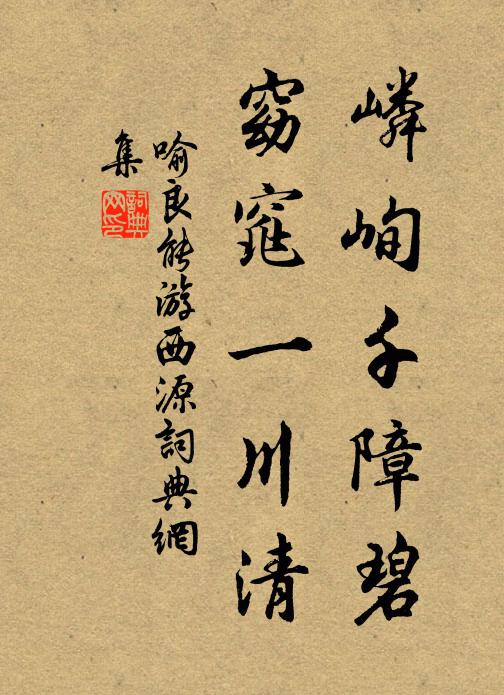 嶙峋千障碧
窈窕一川清
喻良能游西源詞典網
集
詞典
网印